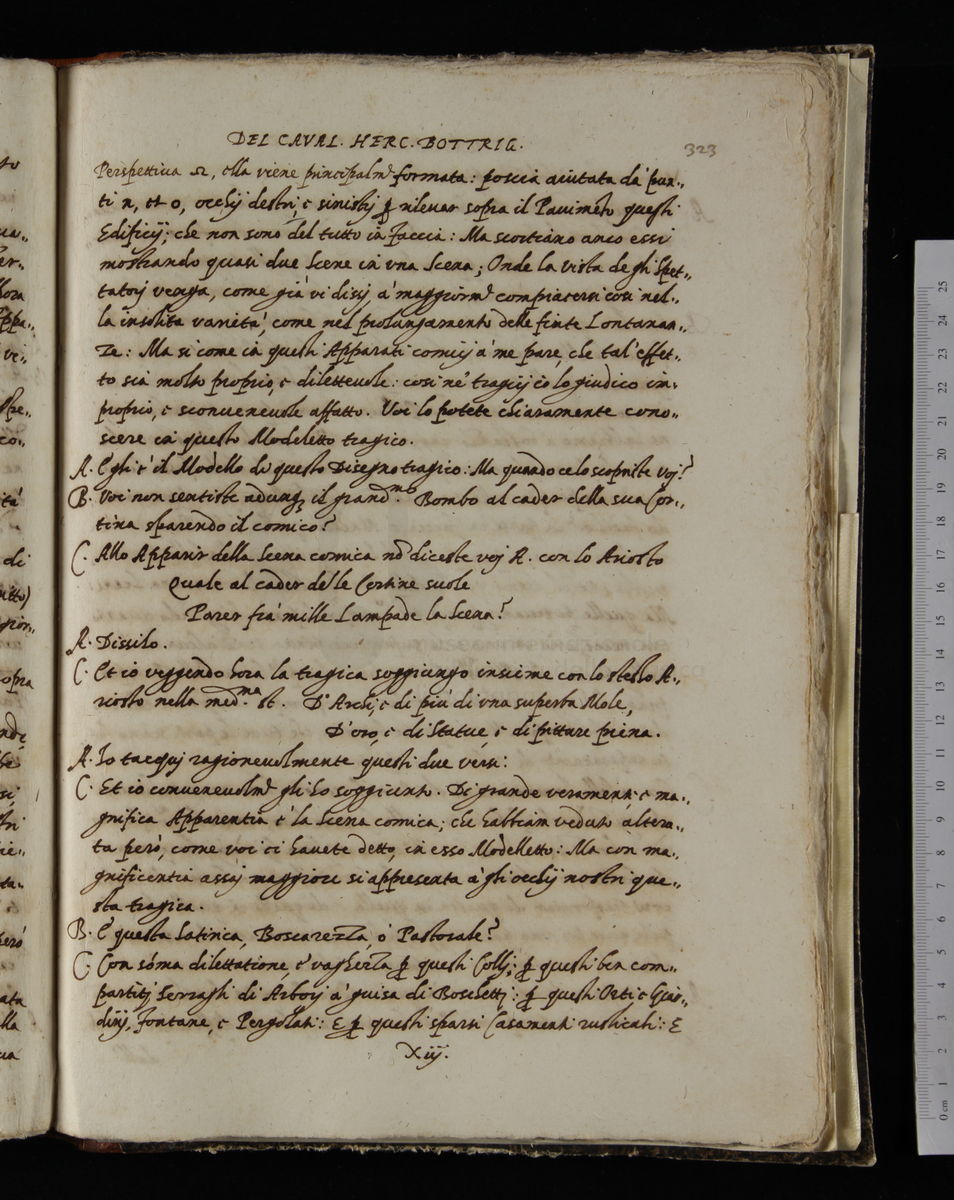 DEL CAVAL. HERC. BOTTRIG.
323
Perspettiua Ω, ella viene principalm.te formata: poscia aiutata da pun..
ti n, et o, occhij destri, e sinistrj ꝑ rileuar sopra il Pauimẽto questi
Edificij; che non sono del tutto in faccia: Ma scortano anco essi
mostrando quasi due Scene in vna Scena; Onde la vista degli Spet..
tatorj venga, come già vi dissj, à maggiorm.te compiacersi così nel..
la insolita varietà, come nel prolungamento delle finte Lontanan..
ze: Ma si come in questi Apparati comicj à me pare, che tal' effet..
to sia molto proprio, e dilettevole: così né tragicj io lo giudico im..
proprio, e sconueneuole affatto. Voi lo potete chiaramente cono..
scere in questo Modeletto tragico.
A. Egli è il Modello di questo Disegno tragico: Ma quãdo ce lo scopriste voj?
B. Voi non sentiste adunq; il grand.mo Bombo al cader della sua Cor..
tina sparendo il comico?
C. Allo Apparir della Scena comica nõ diceste voj A. con lo Ariosto
Quale al cader delle Cortine suole
Parer frà mille Lampade la Scena?
A. Dissilo.
C. Et io veggendo hora la tragica soggiungo insieme con lo stesso A..
riosto nella med.ma st. D'Archi, e di più di vna superba Mole,
D'oro, e di Statue, e di pitture piena.
A. Io tacquj ragioneuolmente questi due versi:
C. Et io conueneuolm.te gli hò soggiunto. Di grande veramente e ma..
gnifica Apparentia è la Scena comica; che habbiam veduto altera..
ta però, come voi ci hauete detto, in esso Modelletto: Ma con ma..
gnificentia assaj maggiore si appresenta à gli occhij nostri que..
sta tragica.
B. E questa Satirica, Boscarezza, ò Pastorale?
C. Con sõma dilettatione, e vaghezza ꝑ questi Collj; ꝑ questi ben com..
partitj Serragli di Arborj à guisa di Boschettj: ꝑ questi Orti e Giar..
dinj, Fontane, e Pergolati: E ꝑ questi sparsi Casamenti rusticali: E
X iij.